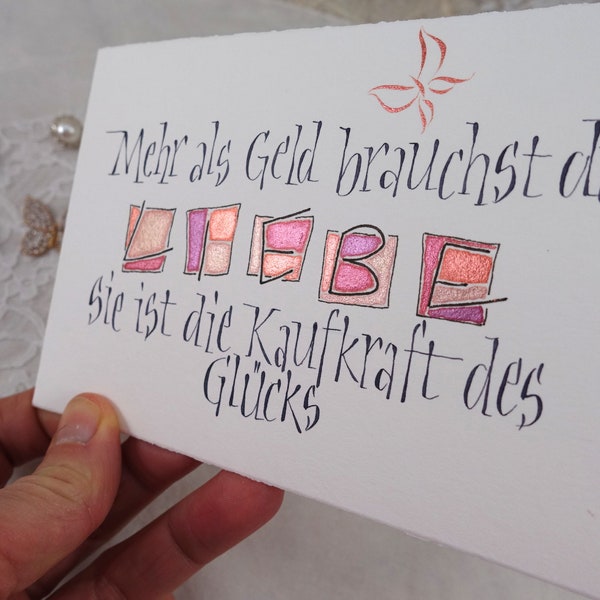 Mehr als Geld brauchst d
LIEBE
sie ist die Kaufkraft des
Glücks